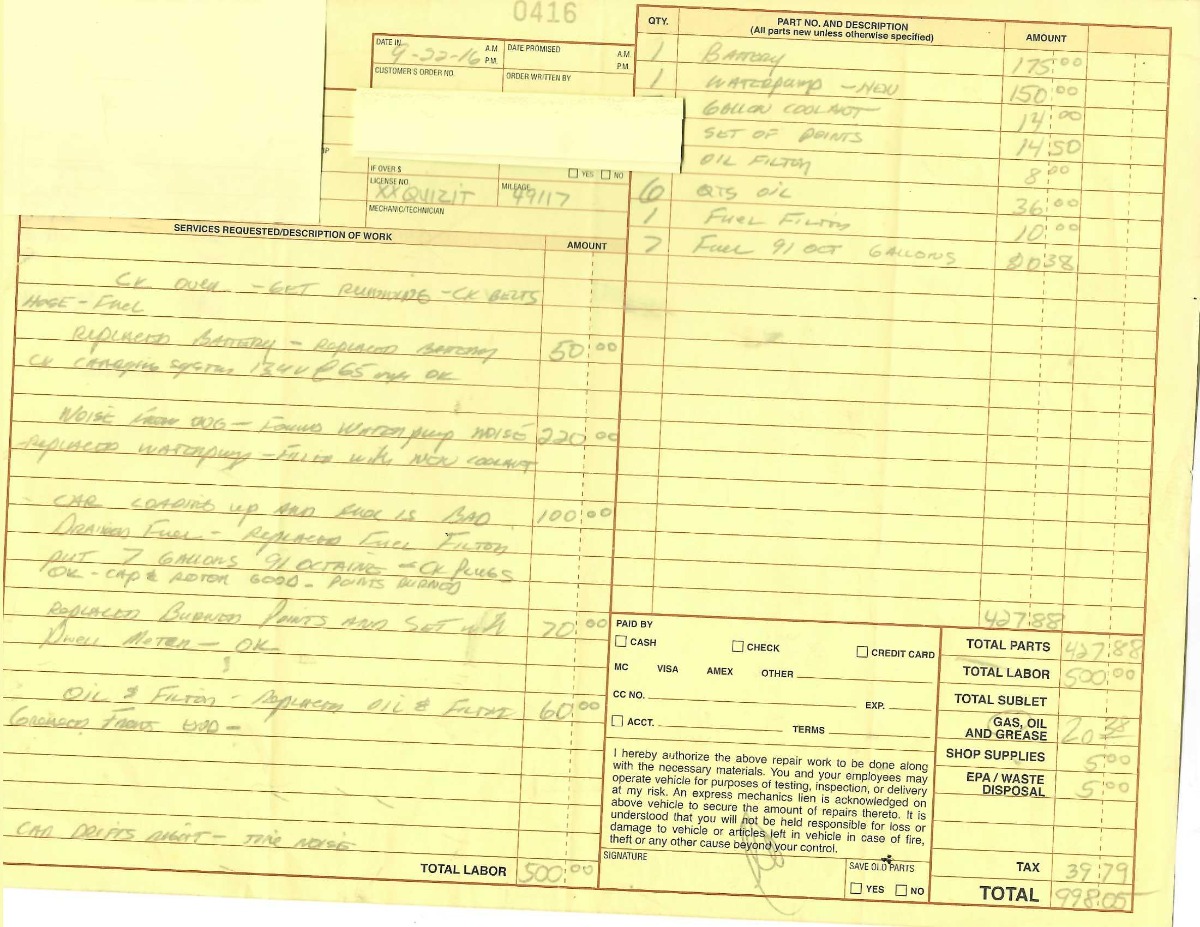 0416
DATE IN 9-22-16 A.M. P.M. DATE PROMISED A.M. P.M.
CUSTOMER'S ORDER NO. ORDER WRITTEN BY
IF OVER $ YES NO
LICENSE NO. XXQUIZIT MILEAGE 49117
MECHANIC/TECHNICIAN
QTY. PART NO. AND DESCRIPTION (All parts new unless otherwise specified) AMOUNT
1 BATTERY 175.00
1 WATERPUMP - NEW 150.00
GALLON COOLANT 14.00
SET OF POINTS 14.50
OIL FILTER 8.00
6 QTS OIL 36.00
1 FUEL FILTER 10.00
7 FUEL 91 OCT GALLONS 2038
427.88
SERVICES REQUESTED/DESCRIPTION OF WORK AMOUNT
CK OVER - GET RUNNING - CK BELTS
HOSE - FUEL
REPLACED BATTERY - REPLACED BATTERY 50.00
CK CHARGING SYSTEM OK
NOISE FROM - FOUND WATERPUMP NOISE 220.00
- REPLACED WATERPUMP - FILLED WITH NEW COOLANT
CAR LOADING UP AND FUEL IS BAD 100.00
DRAINED FUEL - REPLACED FUEL FILTER
PUT 7 GALLONS 91 OCTAINE - CK PLUGS
OK - CAP & ROTOR GOOD - POINTS BURNED
REPLACED BURNED POINTS AND SET WITH 70.00
DWELL METER - OK
OIL & FILTER - REPLACED OIL & FILTER 60.00
GREASED FRONT END -
CAR DRIFTS RIGHT - TIRE NOISE
TOTAL LABOR 500.00
PAID BY
CASH CHECK CREDIT CARD
MC VISA AMEX OTHER
CC NO. EXP.
ACCT. TERMS
I hereby authorize the above repair work to be done along
with the necessary materials. You and your employees may
operate vehicle for purposes of testing, inspection, or delivery
at my risk. An express mechanics lien is acknowledged on
above vehicle to secure the amount of repairs thereto. It is
understood that you will not be held responsible for loss or
damage to vehicle or articles left in vehicle in case of fire,
theft or any other cause beyond your control.
SIGNATURE
SAVE OLD PARTS
YES NO
TOTAL PARTS 427.88
TOTAL LABOR 500.00
TOTAL SUBLET
GAS, OIL AND GREASE 20.38
SHOP SUPPLIES 5.00
EPA / WASTE DISPOSAL 5.00
TAX 39.79
TOTAL 998.05